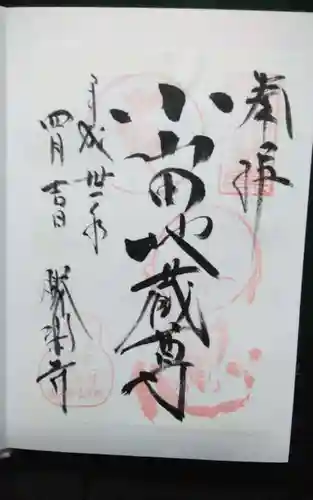 奉拝
小山田地蔵尊
平成丗一年
四月吉日
勝楽寺